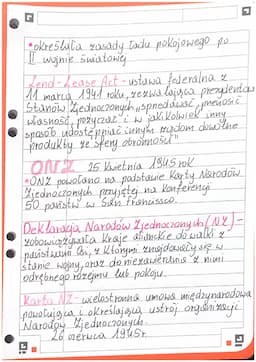 • określała zasady ładu pokojowego po
II wojnie światowej
Lend-Lease Act - ustawa federalna z
11 marca 1941 roku, zezwalająca prezydentowi
Stanów Zjednoczonych "sprzedawać, przenosić
własność, pożyczać i w jakikolwiek inny
sposób udostępniać innym rządom dowolne
produkty ze sfery obronności"
ONZ 25 kwietnia 1945 rok
• ONZ powołano na podstawie Karty Narodów
Zjednoczonych przyjętej na konferencji
50 państw w San Francisco.
Deklaracja Narodów Zjednoczonych (NZ) -
zobowiązywała kraje alianckie do walki z
państwami Osi, z którymi znajdowały się w
stanie wojny, oraz do niezawierania z nimi
odrębnego rozejmu lub pokoju.
Karta NZ - wielostronna umowa międzynarodowa
powołująca i określająca ustrój organizacji
Narodów Zjednoczonych.
26 czerwca 1945r.